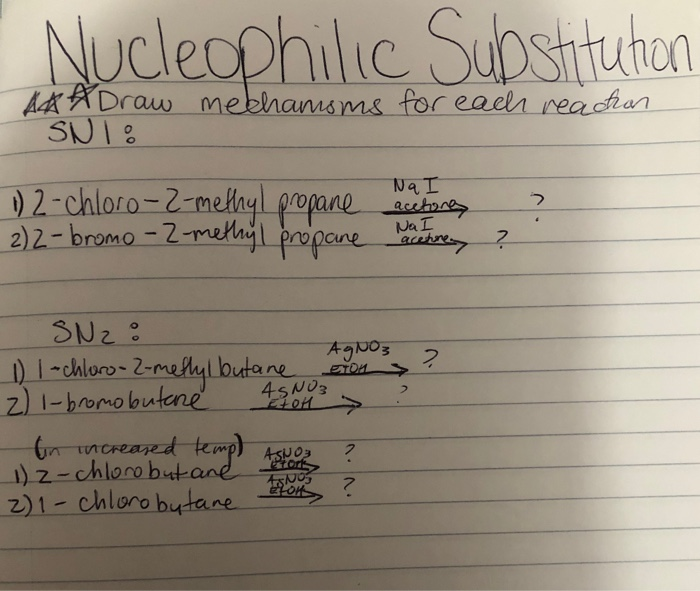 Nucleophilic Substitution
☆☆☆ Draw mechanisms for each reaction
SN1:
1) 2-chloro-2-methyl propane NaI acetone → ?
2) 2-bromo-2-methyl propane NaI acetone → ?
SN2:
1) 1-chloro-2-methyl butane AgNO3 EtOH → ?
2) 1-bromobutane AgNO3 EtOH → ?
(in increased temp)
1) 2-chlorobutane AgNO3 EtOH → ?
2) 1-chlorobutane AgNO3 EtOH → ?